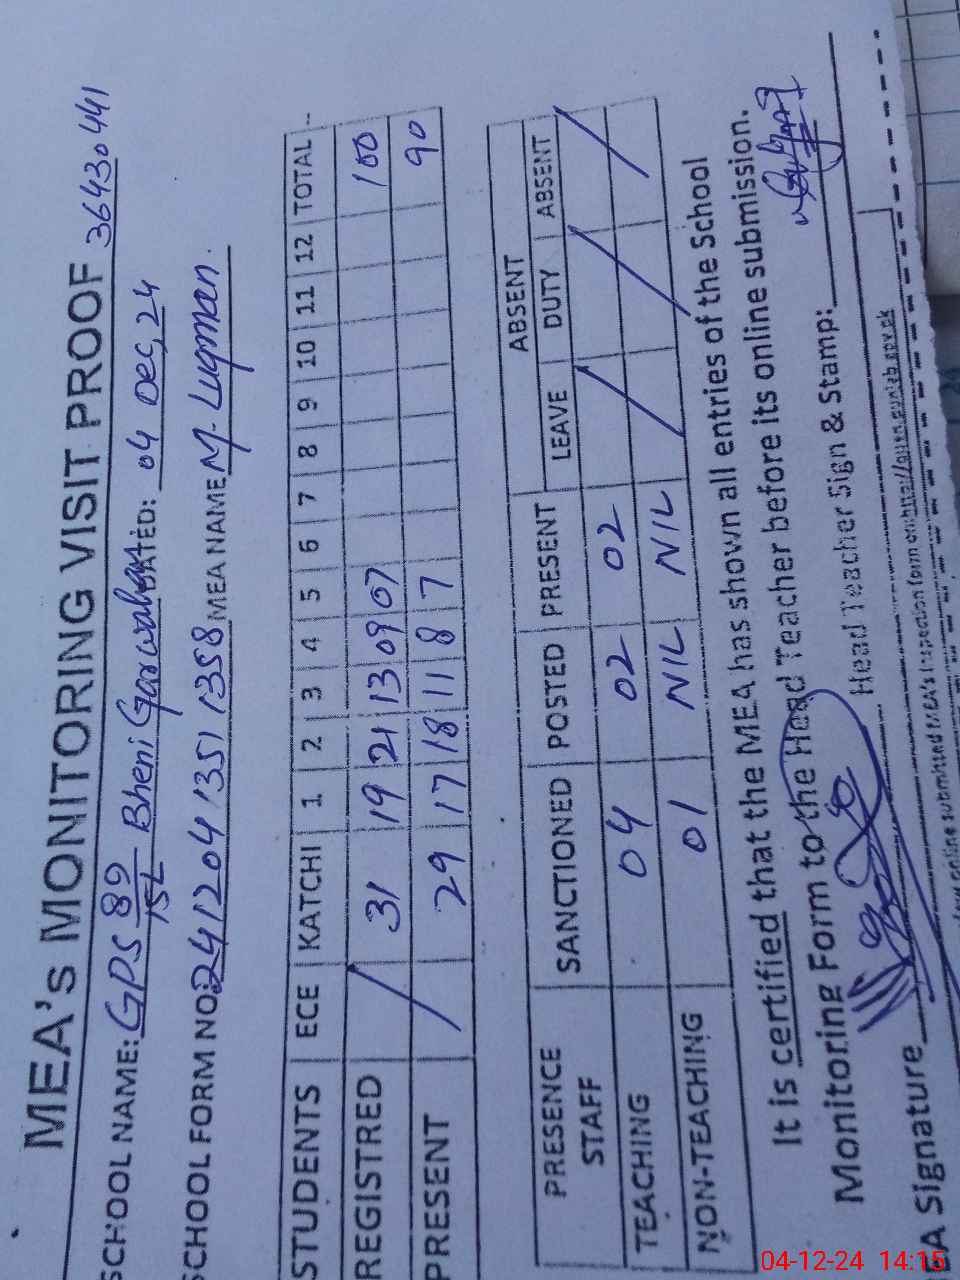 MEA's MONITORING VISIT PROOF 36430441
SCHOOL NAME: GPS 89/15L Bheni DATED: 04 Dec, 24
SCHOOL FORM NO: 2412041351 1358 MEA NAME M. Luqman.
STUDENTS ECE KATCHI 1 2 3 4 5 6 7 8 9 10 11 12 TOTAL
REGISTRED / 31 19 21 13 09 07 100
PRESENT 29 17 18 11 8 7 90
PRESENCE STAFF SANCTIONED POSTED PRESENT ABSENT
LEAVE DUTY ABSENT
TEACHING 04 02 02 / / /
NON-TEACHING 01 NIL NIL
It is certified that the MEA has shown all entries of the School
Monitoring Form to the Head Teacher before its online submission.
EA Signature Head Teacher Sign & Stamp:
online submitted MEA's Inspection form on
04-12-24 14:15